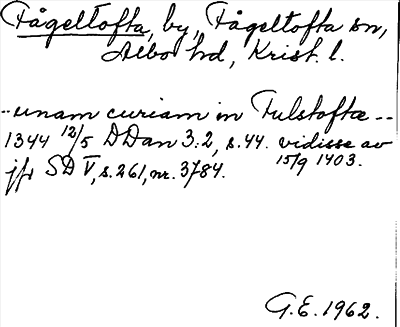 Fågeltofta, by, Fågeltofta sn,
Albo hd, Krist. l.
-- unam curiam in Fulstofte --
1344 12/5 DDan 3:2, s.44. vidisse av
15/9 1403.
jfr SD V, s.261, nr. 3784.
G.E. 1962.